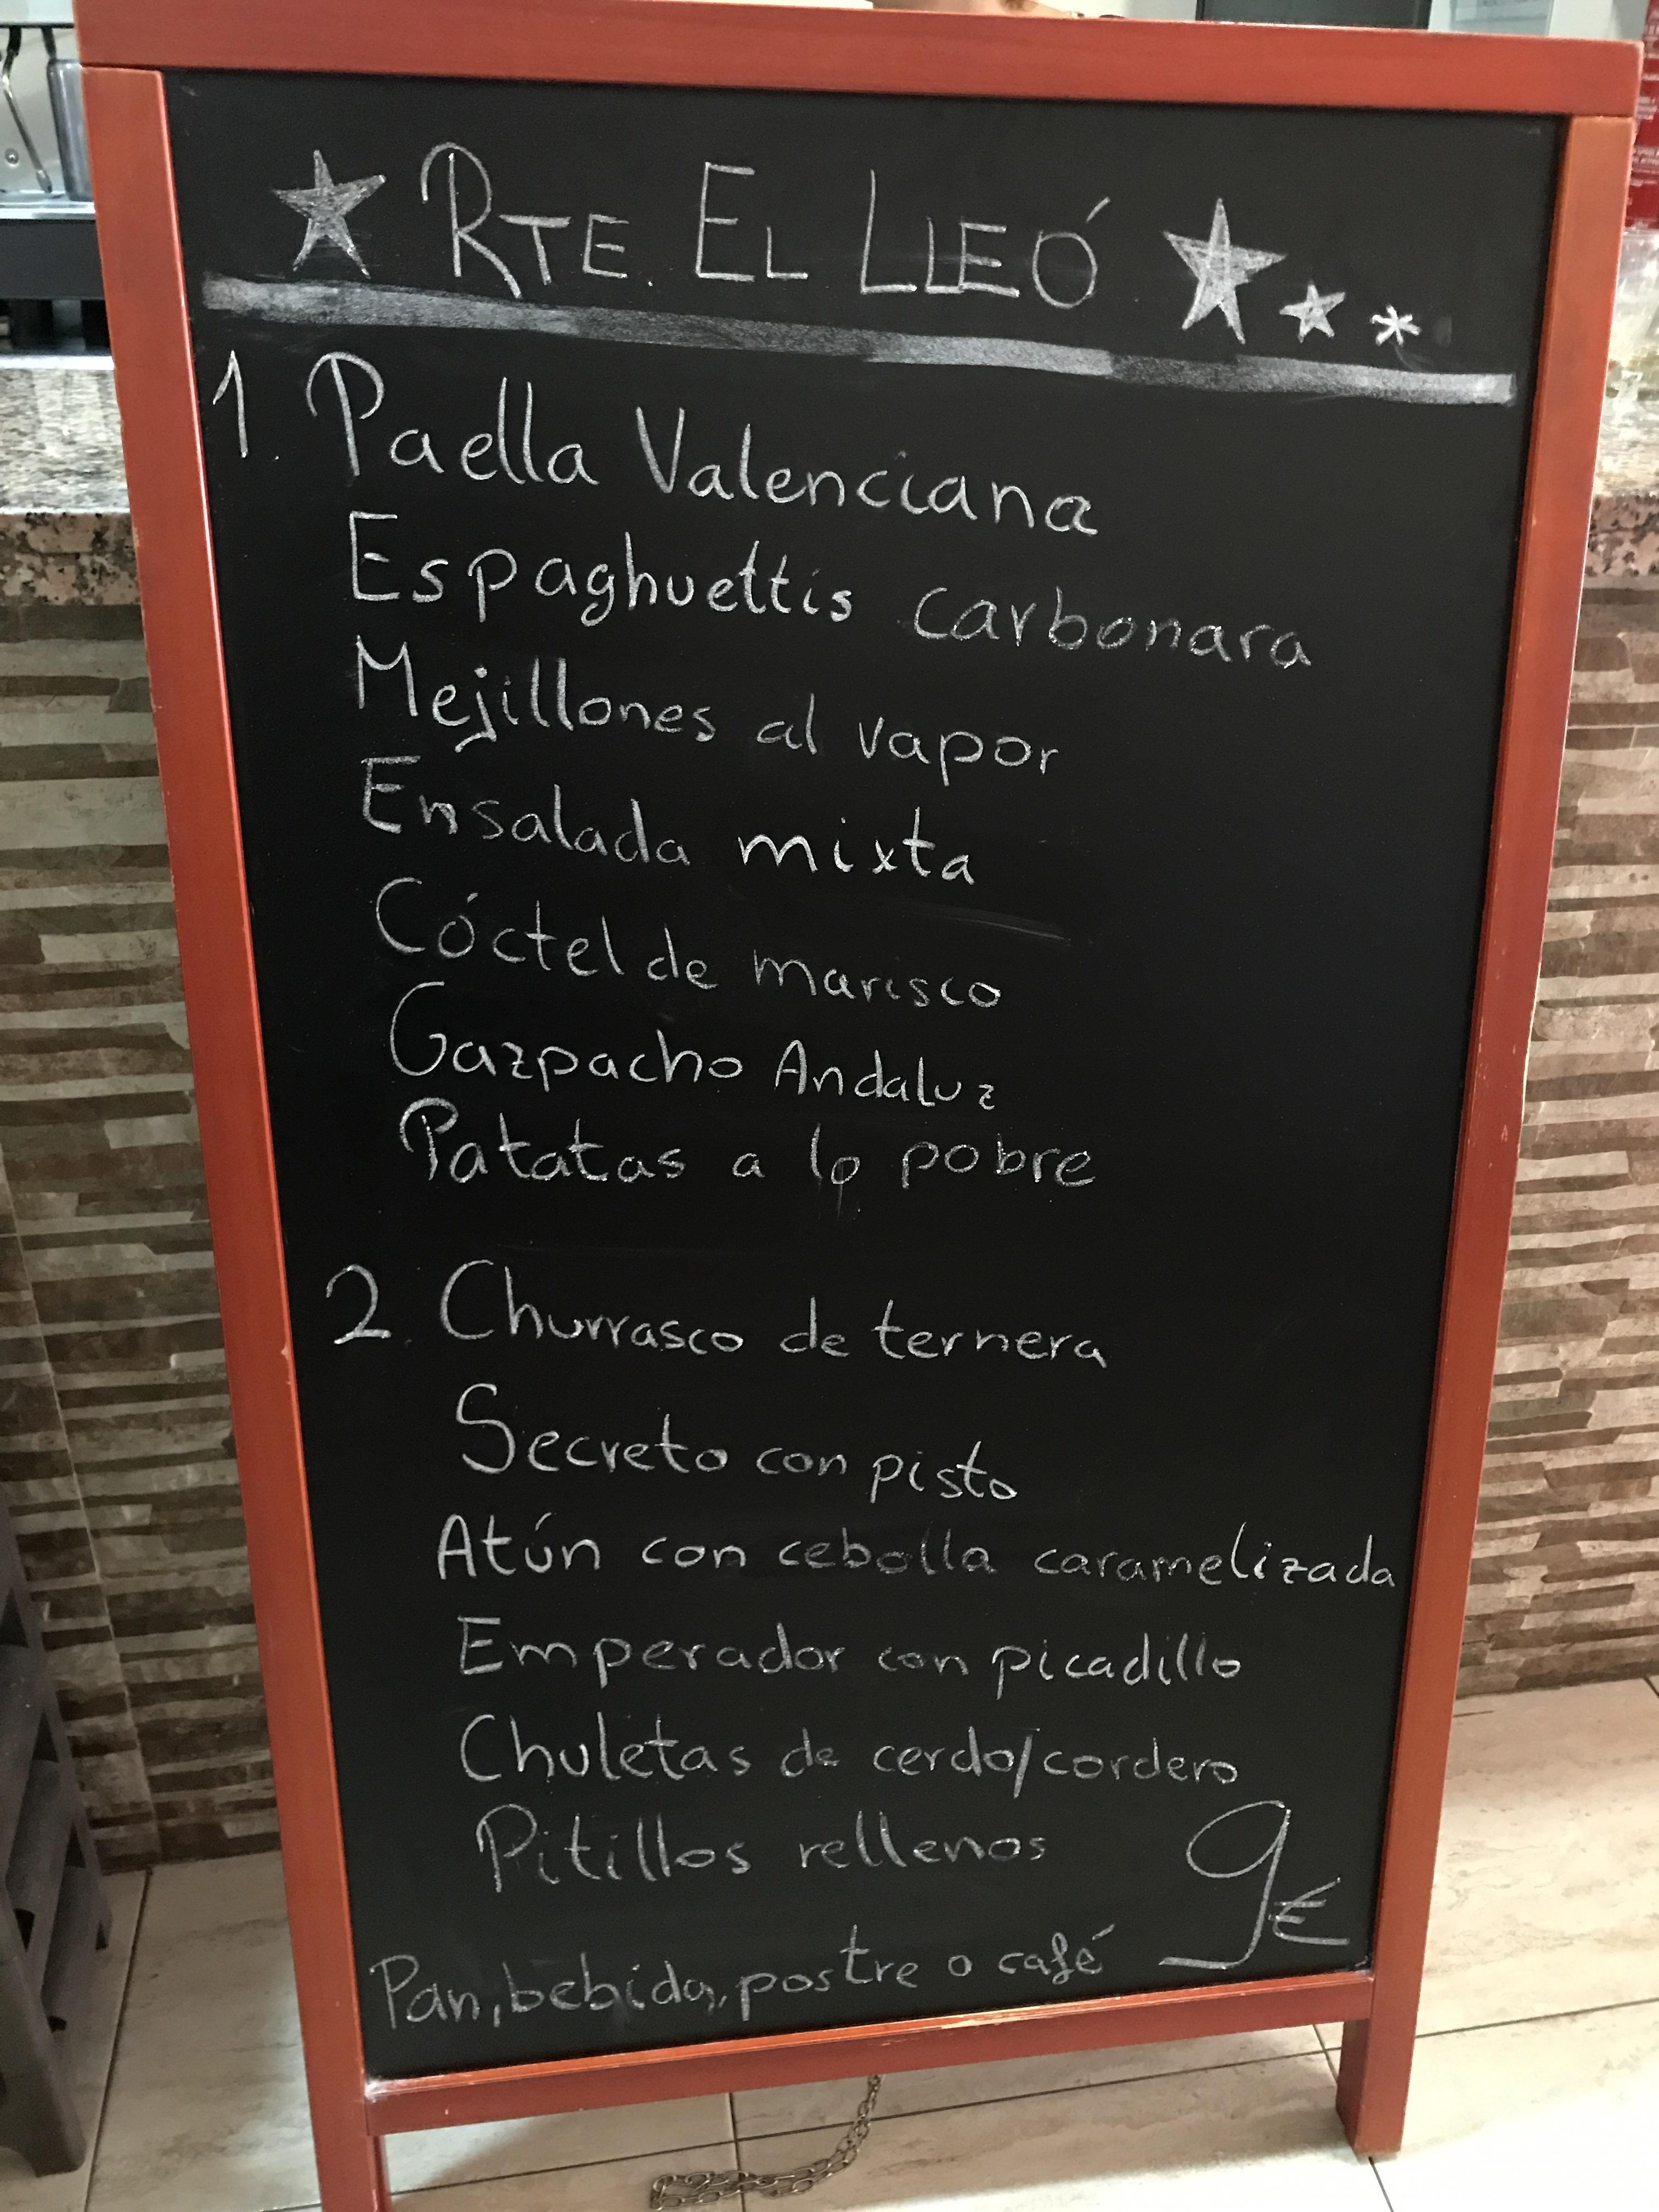 RTE. EL LLEÓ
1. Paella Valenciana
Espaghuettis carbonara
Mejillones al vapor
Ensalada mixta
Cóctel de marisco
Gazpacho Andaluz
Patatas a lo pobre
2. Churrasco de ternera
Secreto con pisto
Atún con cebolla caramelizada
Emperador con picadillo
Chuletas de cerdo/cordero
Pitillos rellenos
9€
Pan, bebida, postre o café